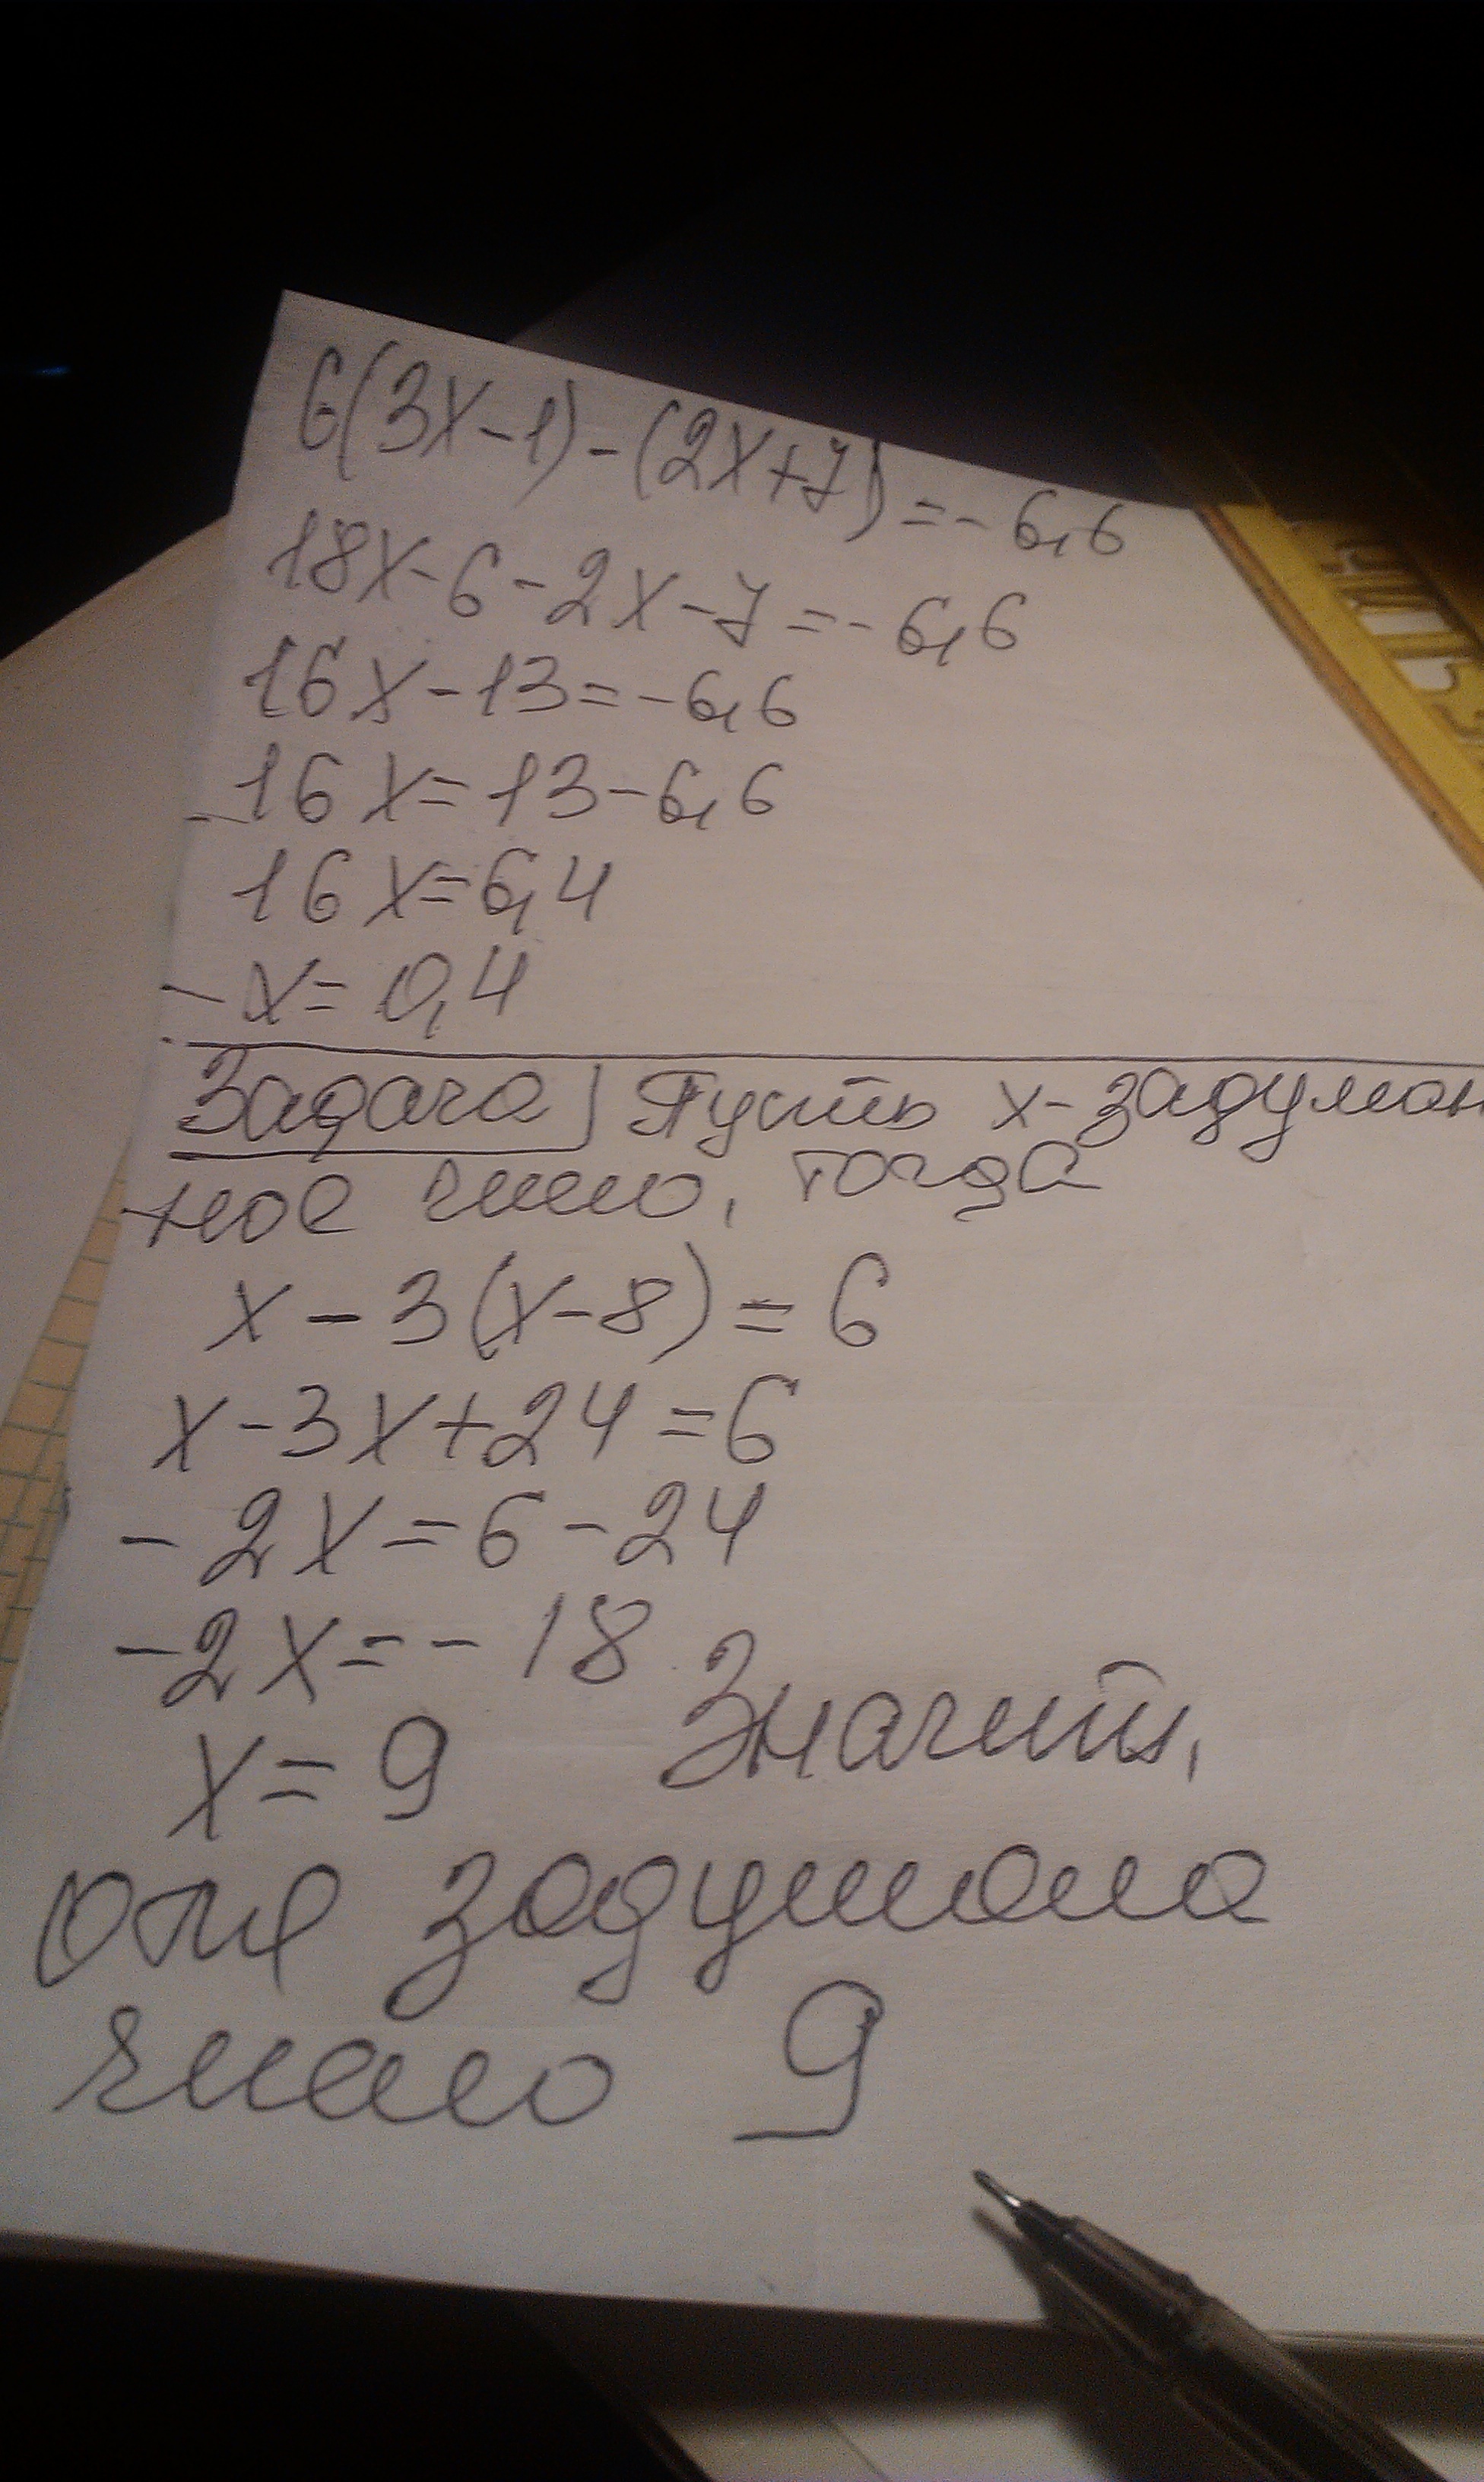 6(3х-1)-(2х+7)=-6,6
18х-6-2х-7=-6,6
16х-13=-6,6
16х=13-6,6
16х=6,4
х=0,4
Задача Пусть х-задуман
ное число, тогда
х-3(х-8)=6
х-3х+24=6
-2х=6-24
-2х=-18
х=9 Значит,
оля задумала
число 9